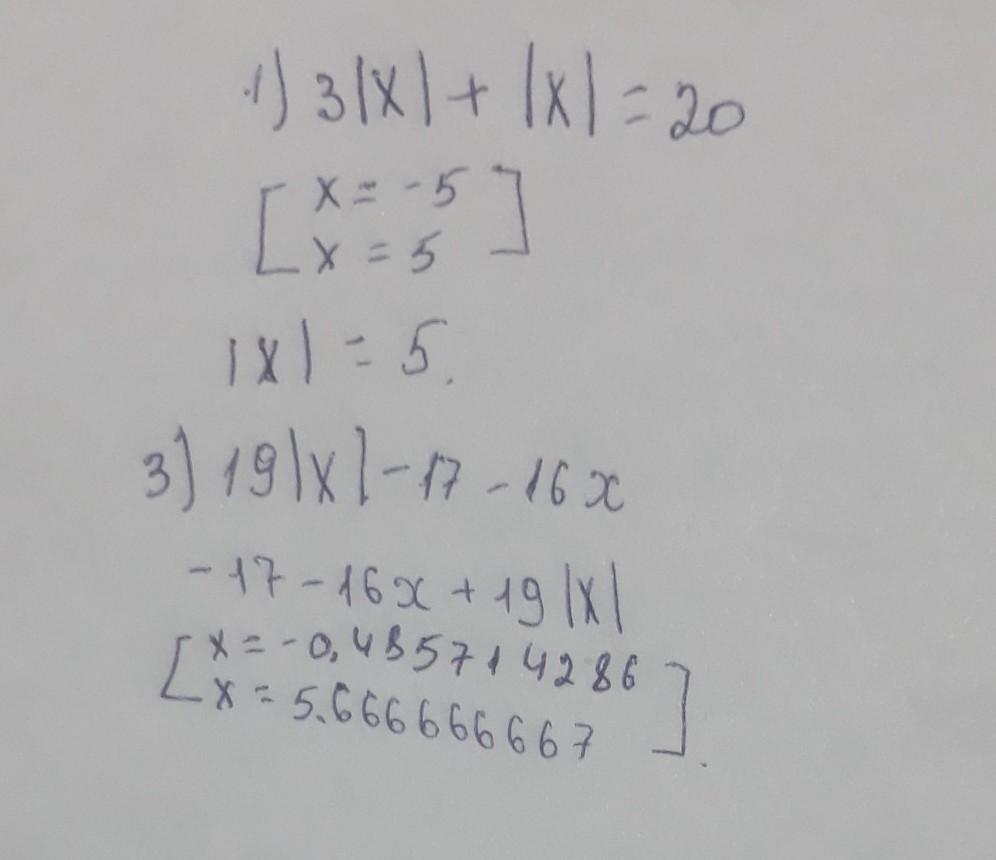 1) 3|x| + |x| = 20
[ x = -5
x = 5 ]
|x| = 5.
3) 19|x| - 17 - 16x
-17 - 16x + 19|x|
[ x = -0,485714286
x = 5.666666667 ].